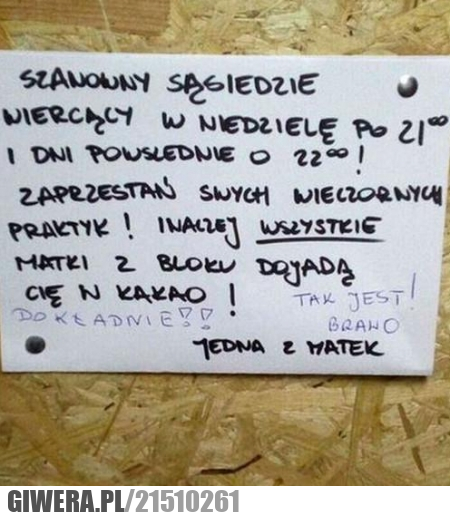 SZANOWNY SĄSIEDZIE
WIERCĄCY W NIEDZIELĘ PO 21⁰⁰
I DNI POWSZEDNIE O 22⁰⁰!
ZAPRZESTAŃ SWYCH WIECZORNYCH
PRAKTYK! INACZEJ WSZYSTKIE
MATKI Z BLOKU DOJADĄ
CIĘ W KAKAO!
TAK JEST!
DOKŁADNIE!!
BRAWO
JEDNA Z MATEK
GIWERA.PL/21510261